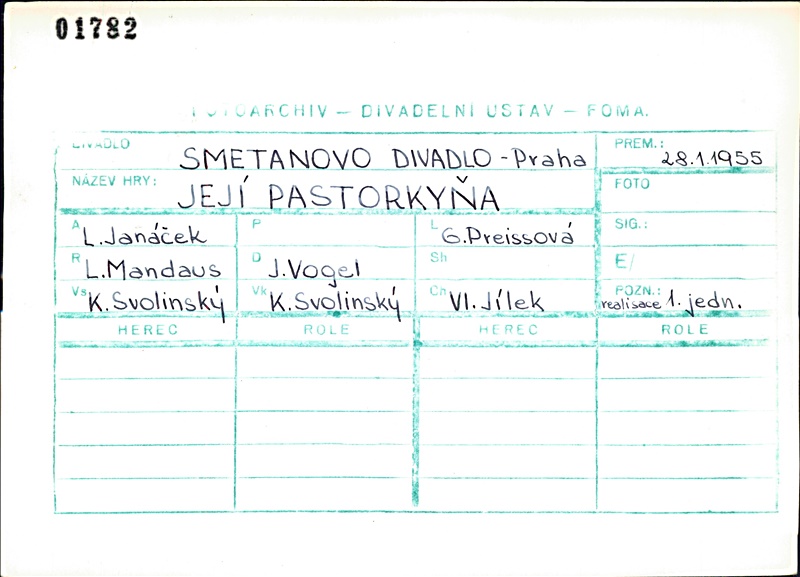 01782
FOTOARCHIV – DIVADELNÍ ÚSTAV – FOMA.
DIVADLO SMETANOVO DIVADLO - Praha PREM.: 28.1.1955
NÁZEV HRY: JEJÍ PASTORKYŇA FOTO
A L. Janáček P L G. Preissová SIG.:
R L. Mandaus D J. Vogel Sh E/
Vs K. Svolinský Vk K. Svolinský Ch Vl. Jílek POZN.: realisace 1. jedn.
HEREC ROLE HEREC ROLE